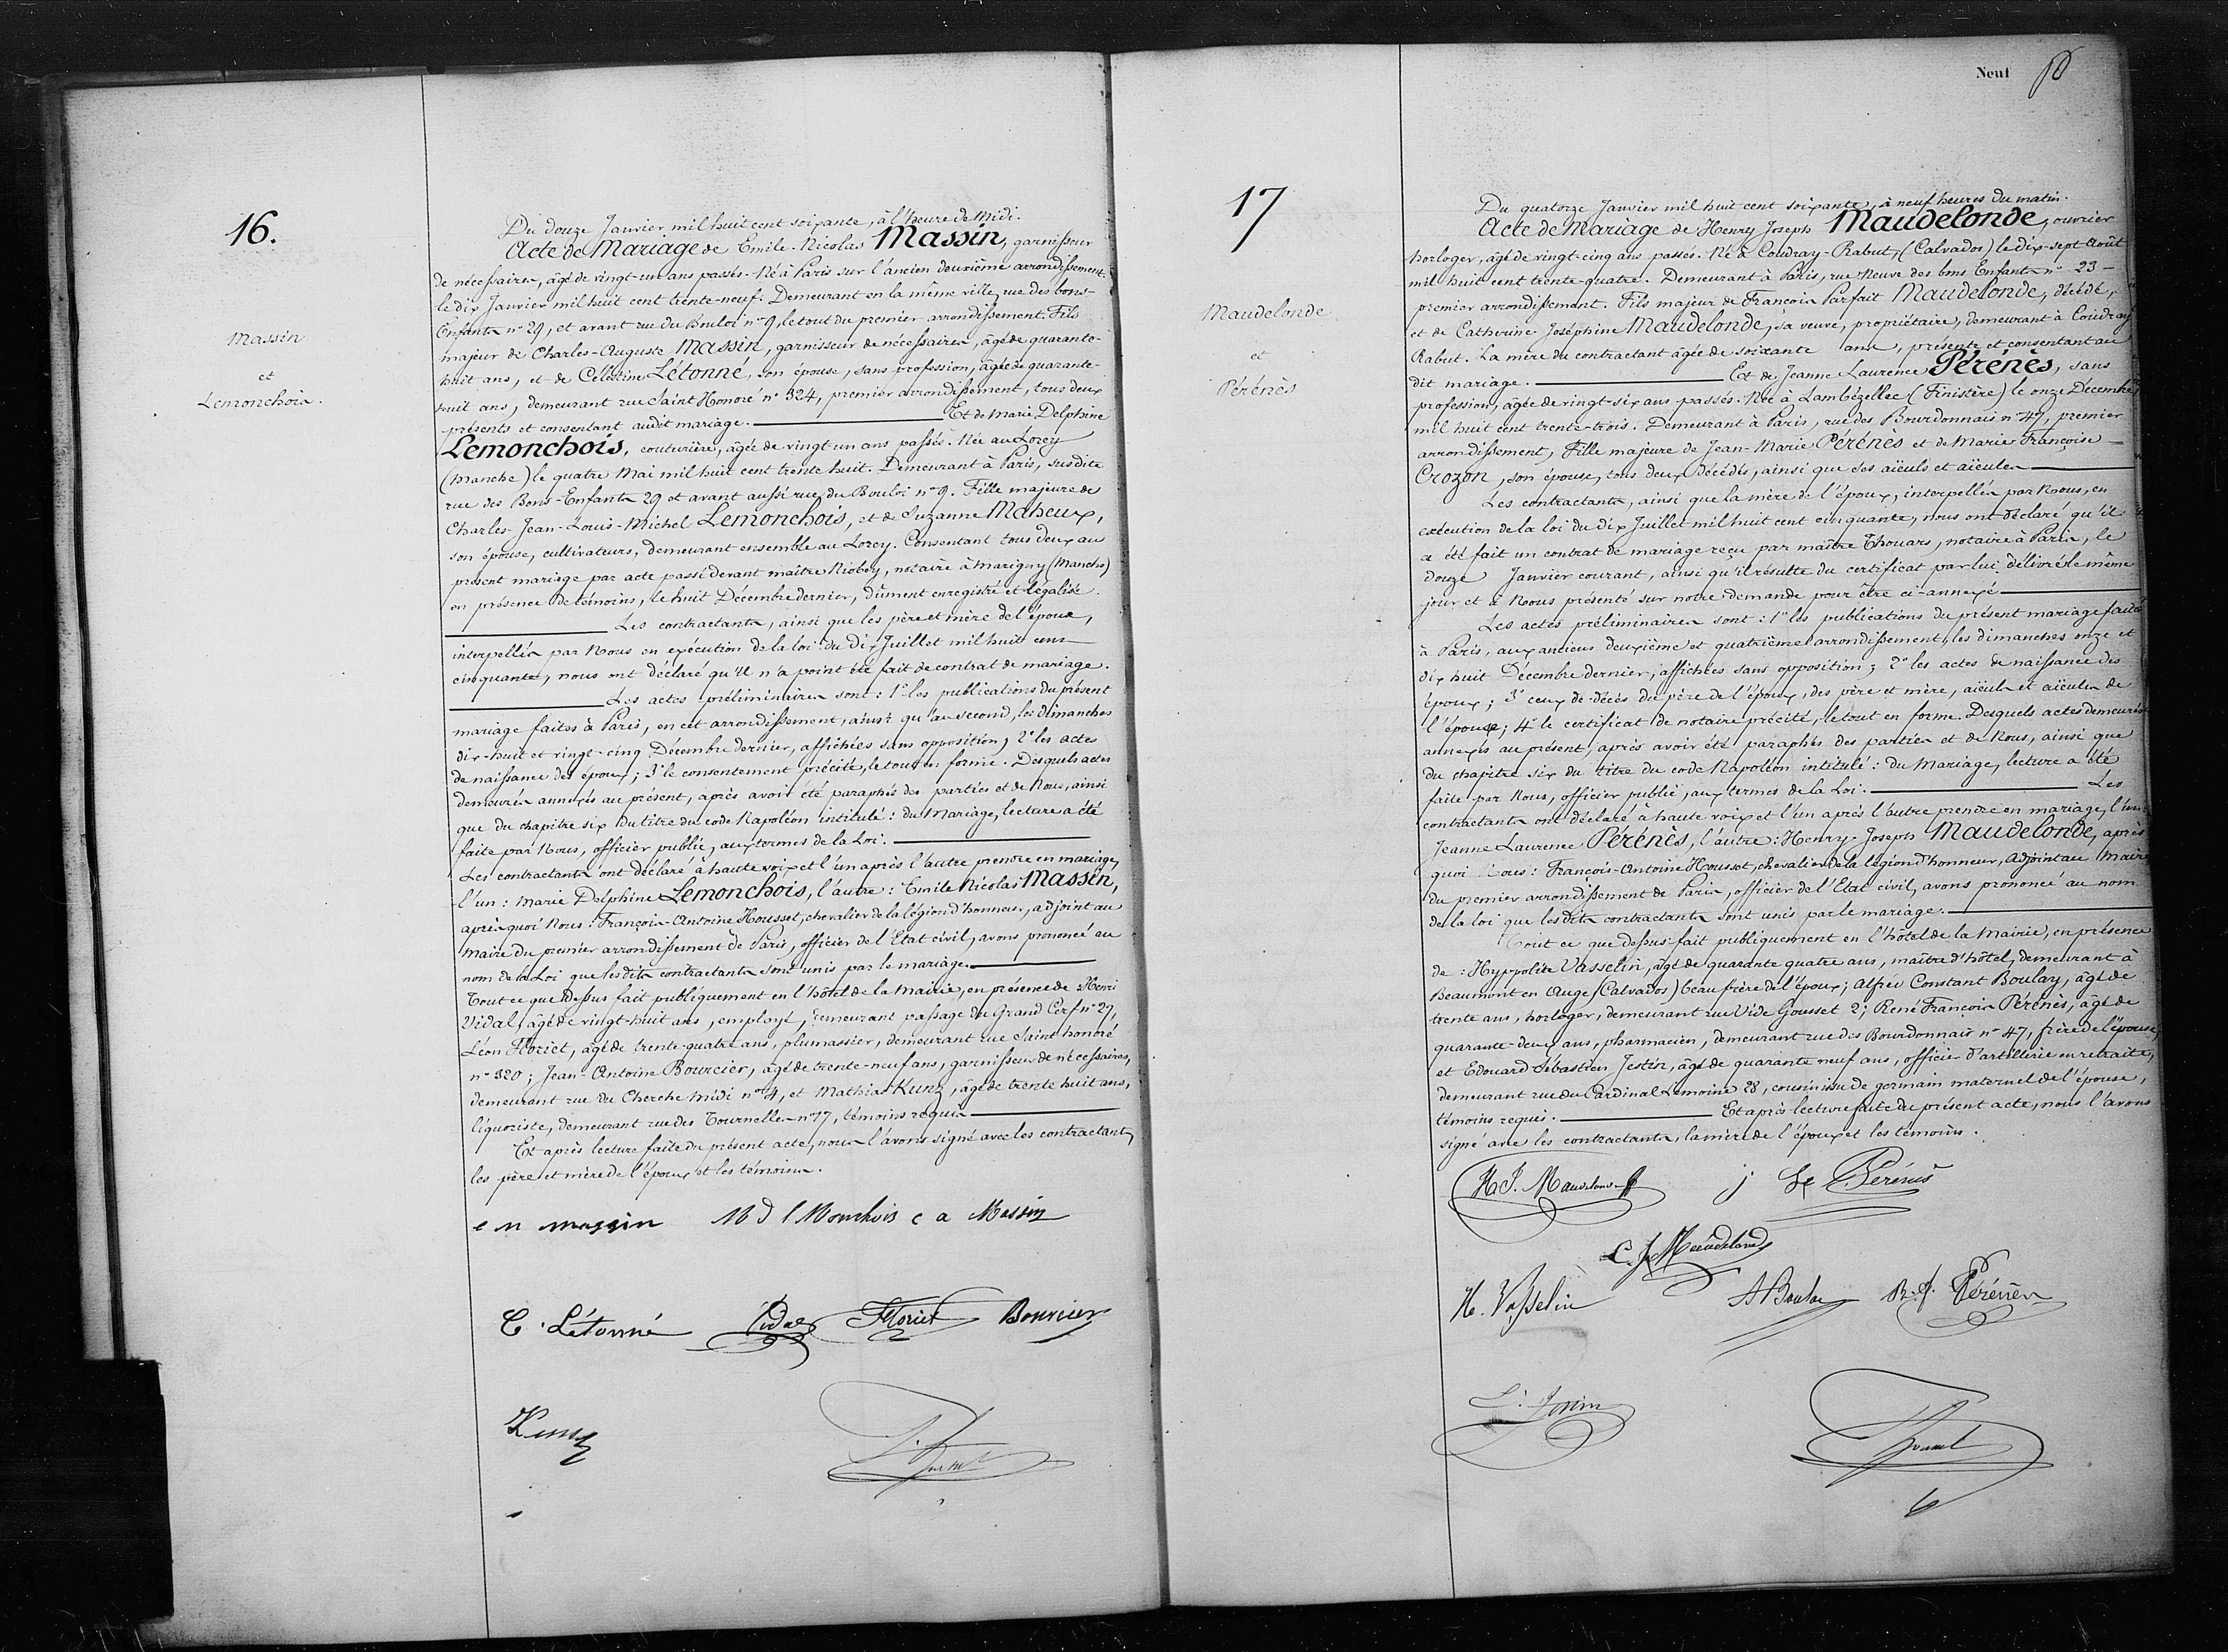 16.
Massin
et
Lemonchois.
Du douze Janvier mil huit cent soixante, à l'heure de Midi.
Acte de Mariage de Emile-Nicolas Massin, garnisseur
de nécessaires, âgé de vingt-un ans passés. Né à Paris sur l'ancien deuxième arrondissement.
le dix Janvier mil huit cent trente-neuf. Demeurant en la même ville, rue des bons-
Enfants n° 29, et avant rue du Bouloi n° 9, le tout du premier arrondissement. Fils
majeur de Charles-Auguste Massin, garnisseur de nécessaires, âgé de quarante-
huit ans, et de Celestine Létonné, son épouse, sans profession, âgée de quarante-
huit ans, demeurant rue Saint Honoré n° 324, premier arrondissement, tous deux
présents et consentant audit mariage. Et de Marie Delphine
Lemonchois, couturière, âgée de vingt-un ans passés. Née au Lorey
(Manche) le quatre Mai mil huit cent trente huit. Demeurant à Paris, susdite
rue des Bons-Enfants 29 et avant aussi rue du Bouloi n° 9. Fille majeure de
Charles-Jean-Louis-Michel Lemonchois, et de Suzanne Maheux,
son épouse, cultivateurs, demeurant ensemble au Lorey. Consentant tous deux au
présent mariage par acte passé devant maître Riobey, notaire à Marigny (Manche)
en présence de témoins, le huit Décembre dernier, dûment enregistré et légalisé.
Les contractants, ainsi que les père et mère de l'époux,
interpellés par Nous en exécution de la loi du dix Juillet mil huit cent
cinquante, nous ont déclaré qu'il n'a point été fait de contrat de mariage.
Les actes préliminaires sont: 1° les publications du présent
mariage faites à Paris, en cet arrondissement, ainsi qu'au second, les dimanches
dix-huit et vingt-cinq Décembre dernier, affichées sans opposition; 2° les actes
de naissance des époux; 3° le consentement précité, le tout en forme. Desquels actes
demeurés annexés au présent, après avoir été paraphés des parties et de Nous, ainsi
que du chapitre six du titre du code Napoléon intitulé: du Mariage, lecture a été
faite par Nous, officier public, aux termes de la Loi.
Les contractants ont déclaré à haute voix et l'un après l'autre prendre en mariage,
l'un: Marie Delphine Lemonchois, l'autre: Emile Nicolas Massin,
après quoi Nous: François-Antoine Housset, chevalier de la légion d'honneur, adjoint au
Maire du premier arrondissement de Paris, officier de l'Etat civil, avons prononcé au
nom de la Loi que lesdits contractants sont unis par le mariage.
Tout ce que dessus fait publiquement en l'hôtel de la Mairie, en présence de Henri
Vidal, âgé de vingt-huit ans, employé, demeurant passage du Grand Cerf n° 27,
Léon Floriet, âgé de trente-quatre ans, plumassier, demeurant rue Saint honoré
n° 320; Jean-Antoine Bourcier, âgé de trente-neuf ans, garnisseur de nécessaires,
demeurant rue du Cherche midi n° 4, et Mathias Kunz, âgé de trente huit ans,
liquoriste, demeurant rue des Tournelles n° 77, témoins requis
Et après lecture faite du présent acte, nous l'avons signé avec les contractants,
les père et mère de l'époux et les témoins.
e n massin M D l Monchois c a Massin
C. Létonné Vidal Floriet Bourcier
Kunz
Neuf
17
Maudelonde
et
Pérénès
Du quatorze Janvier mil huit cent soixante, à neuf heures du matin.
Acte de Mariage de Henry Joseph Maudelonde, ouvrier
horloger, âgé de vingt-cinq ans passés. Né à Coudray-Rabut, (Calvados) le dix-sept Août
mil huit cent trente-quatre. Demeurant à Paris, rue Neuve des bons Enfants n° 23-
premier arrondissement. Fils majeur de François Parfait Maudelonde, décédé,
et de Catherine Joséphine Maudelonde, sa veuve, propriétaire, demeurant à Coudray
Rabut. La mère du contractant âgée de soixante ans, présente et consentant au
dit mariage. Et de Jeanne Laurence Pérénès, sans
profession, âgée de vingt-six ans passés. Née à Lambézellec (Finistère) le onze Décembre
mil huit cent trente-trois. Demeurant à Paris, rue des Bourdonnais n° 47, premier
arrondissement, Fille majeure de Jean-Marie Pérénès et de Marie Françoise
Crozon, son épouse, tous deux décédés, ainsi que ses aïeuls et aïeules
Les contractants, ainsi que la mère de l'époux, interpellés par Nous, en
exécution de la loi du dix Juillet mil huit cent cinquante, nous ont déclaré qu'il
a été fait un contrat de mariage reçu par maître Thouars, notaire à Paris, le
douze Janvier courant, ainsi qu'il résulte du certificat par lui délivré le même
jour et à Nous présenté sur notre demande pour être ci-annexé
Les actes préliminaires sont: 1° les publications du présent mariage faites
à Paris, aux anciens deuxième et quatrième arrondissement, les dimanches onze et
dix huit Décembre dernier, affichées sans opposition; 2° les actes de naissance des
époux; 3° ceux de décès du père de l'époux, des père et mère, aïeuls et aïeules de
l'épouse; 4° le certificat de notaire précité, le tout en forme. Desquels actes demeurés
annexés au présent, après avoir été paraphés des parties et de Nous, ainsi que
du chapitre six du titre du code Napoléon intitulé: du Mariage, lecture a été
faite par Nous, officier public, aux termes de la Loi. Les
contractants ont déclaré à haute voix et l'un après l'autre prendre en mariage, l'un:
Jeanne Laurence Pérénès, l'autre: Henry-Joseph Maudelonde, après
quoi Nous: François-Antoine Housset, chevalier de la légion d'honneur, Adjoint au Maire
du premier arrondissement de Paris, officier de l'Etat civil, avons prononcé au nom
de la loi que lesdits contractants sont unis par le mariage.
Tout ce que dessus fait publiquement en l'hôtel de la Mairie, en présence
de: Hyppolite Vasselin, âgé de quarante quatre ans, maître d'hôtel, demeurant à
Beaumont en Auge (Calvados) beau frère de l'époux; Alfred Constant Boulay, âgé de
trente ans, horloger, demeurant rue Vide Gousset 2; René François Pérénès, âgé de
quarante-deux ans, pharmacien, demeurant rue des Bourdonnais n° 47, frère de l'épouse,
et Edouard Sébastien Jestin, âgé de quarante neuf ans, officier d'artillerie en retraite,
demeurant rue du Cardinal Lemoine 28, cousin issu de germain maternel de l'épouse,
témoins requis. Et après lecture faite du présent acte, nous l'avons
signé avec les contractants, la mère de l'époux et les témoins.
H. J. Maudelonde j Pérénès
C. J. Maudelonde
H. Vasselin A Boulay R. f. Pérénès
E. Jestin